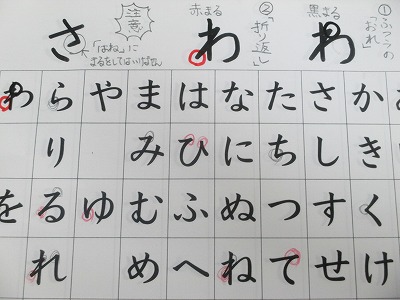 ①
「おれ」
黒まる
わ
②
「折り返し」
赤まる
わ
注意
さ
「はね」に
まるをしてはいけません
かきくけ
さしすせ
たちつて
なにぬね
はひふへ
まみむめ
やゆ
らりるれ
わを